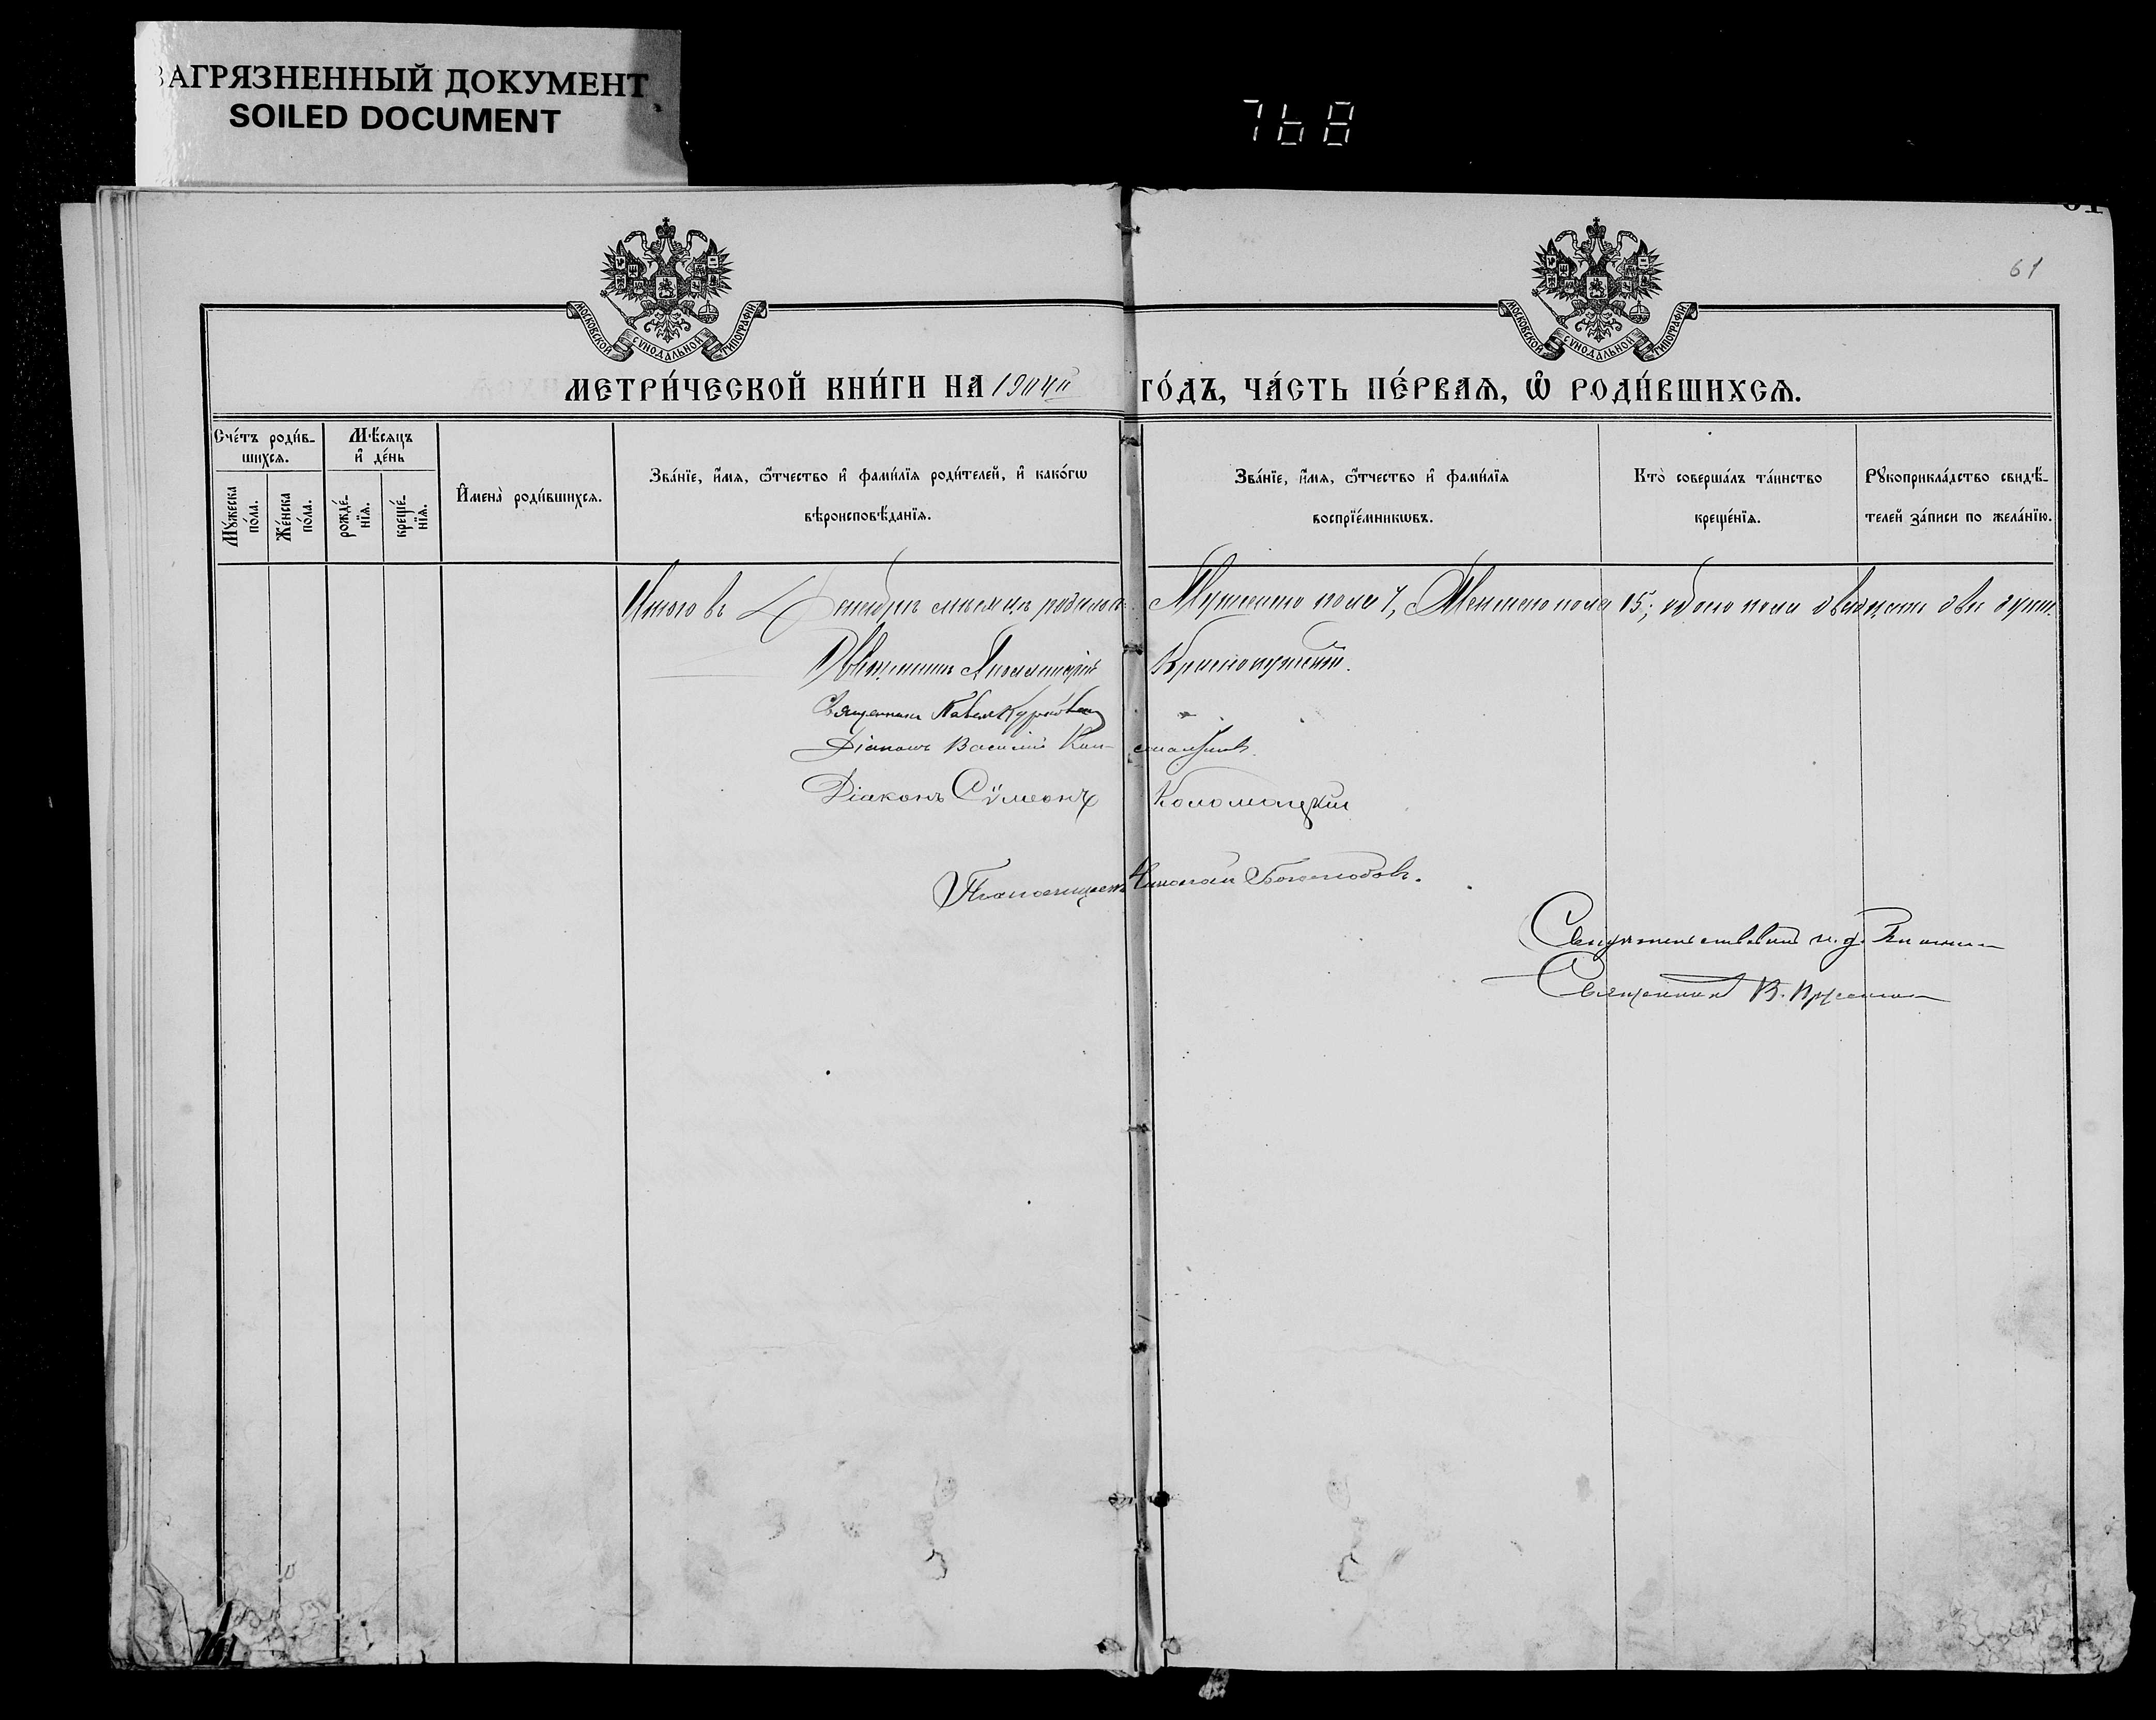 ЗАГРЯЗНЕННЫЙ ДОКУМЕНТ
SOILED DOCUMENT
768
61
МОСКОВСКОЙ СѴНОДАЛЬНОЙ ТИПОГРАФІИ
МОСКОВСКОЙ СѴНОДАЛЬНОЙ ТИПОГРАФІИ
МЕТРИ́ЧЕСКОЙ КНИ́ГИ НА 1904й ГО́ДЪ, ЧА́СТЬ ПЕ́РВАѦ, Ѽ РОДИ́ВШИХСѦ.
Сче́тъ роди́в-
шихсѧ.
Мꙋ́жеска по́ла.
Же́нска по́ла.
Мѣ́сѧцъ
и҆ де́нь
рожде́-нїѧ.
креще́-нїѧ.
И҆мена̀ роди́вшихсѧ.
Зва́нїе, и҆́мѧ, ѻ҆́тчество и҆ фами́лїѧ роди́телей, и҆ како́гѡ
вѣроисповѣ́данїѧ.
Зва́нїе, и҆́мѧ, ѻ҆́тчество и҆ фами́лїѧ
воспрїе́мникѡвъ.
Кто̀ соверша́лъ та́инство
креще́нїѧ.
Рꙋкоприкла́дство свидѣ́-
телей за́писи по жела́нїю.
Итого въ Декабрѣ мѣсяцѣ родилось Мужескаго пола 7, Женскаго пола 15; обоего пола двадцать двѣ души.
Священникъ
Священникъ Павел
Діаконъ Василій
Діаконъ Сѵмеонъ Коломацкій
Псаломщикъ Николай Боголюбовъ.
Свидѣтельствовалъ и. д.
Священникъ В.